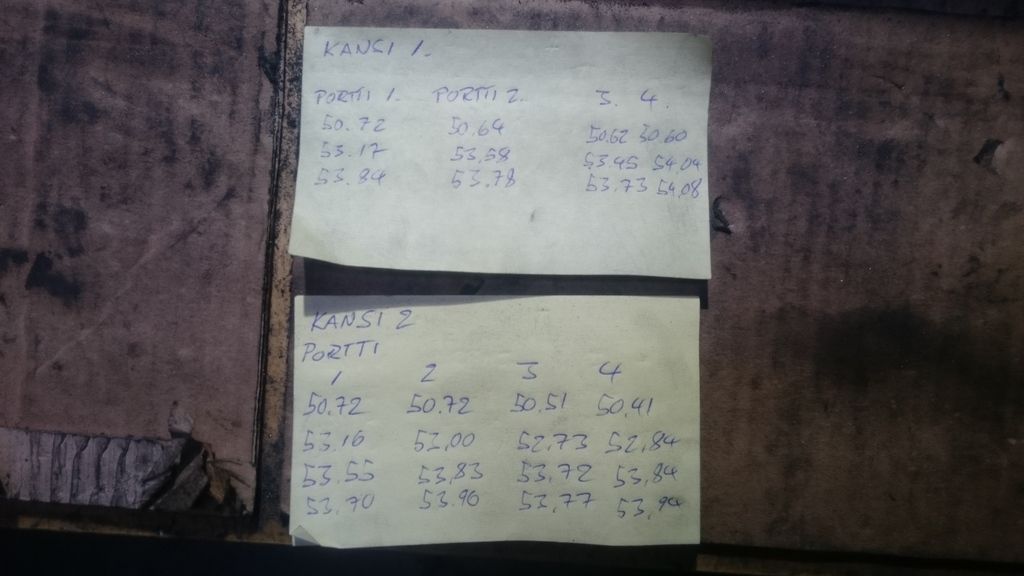 KANSI 1.
PORTTI 1. PORTTI 2. 3. 4.
50.72 50.64 50.62 50.60
53.17 53.58 53.45 54.04
53.84 53.78 53.73 54.08
KANSI 2
PORTTI
1 2 3 4
50.72 50.72 50.51 50.41
53.16 53.00 52.73 52.84
53.55 53.83 53.72 53.84
53.70 53.90 53.77 53.94